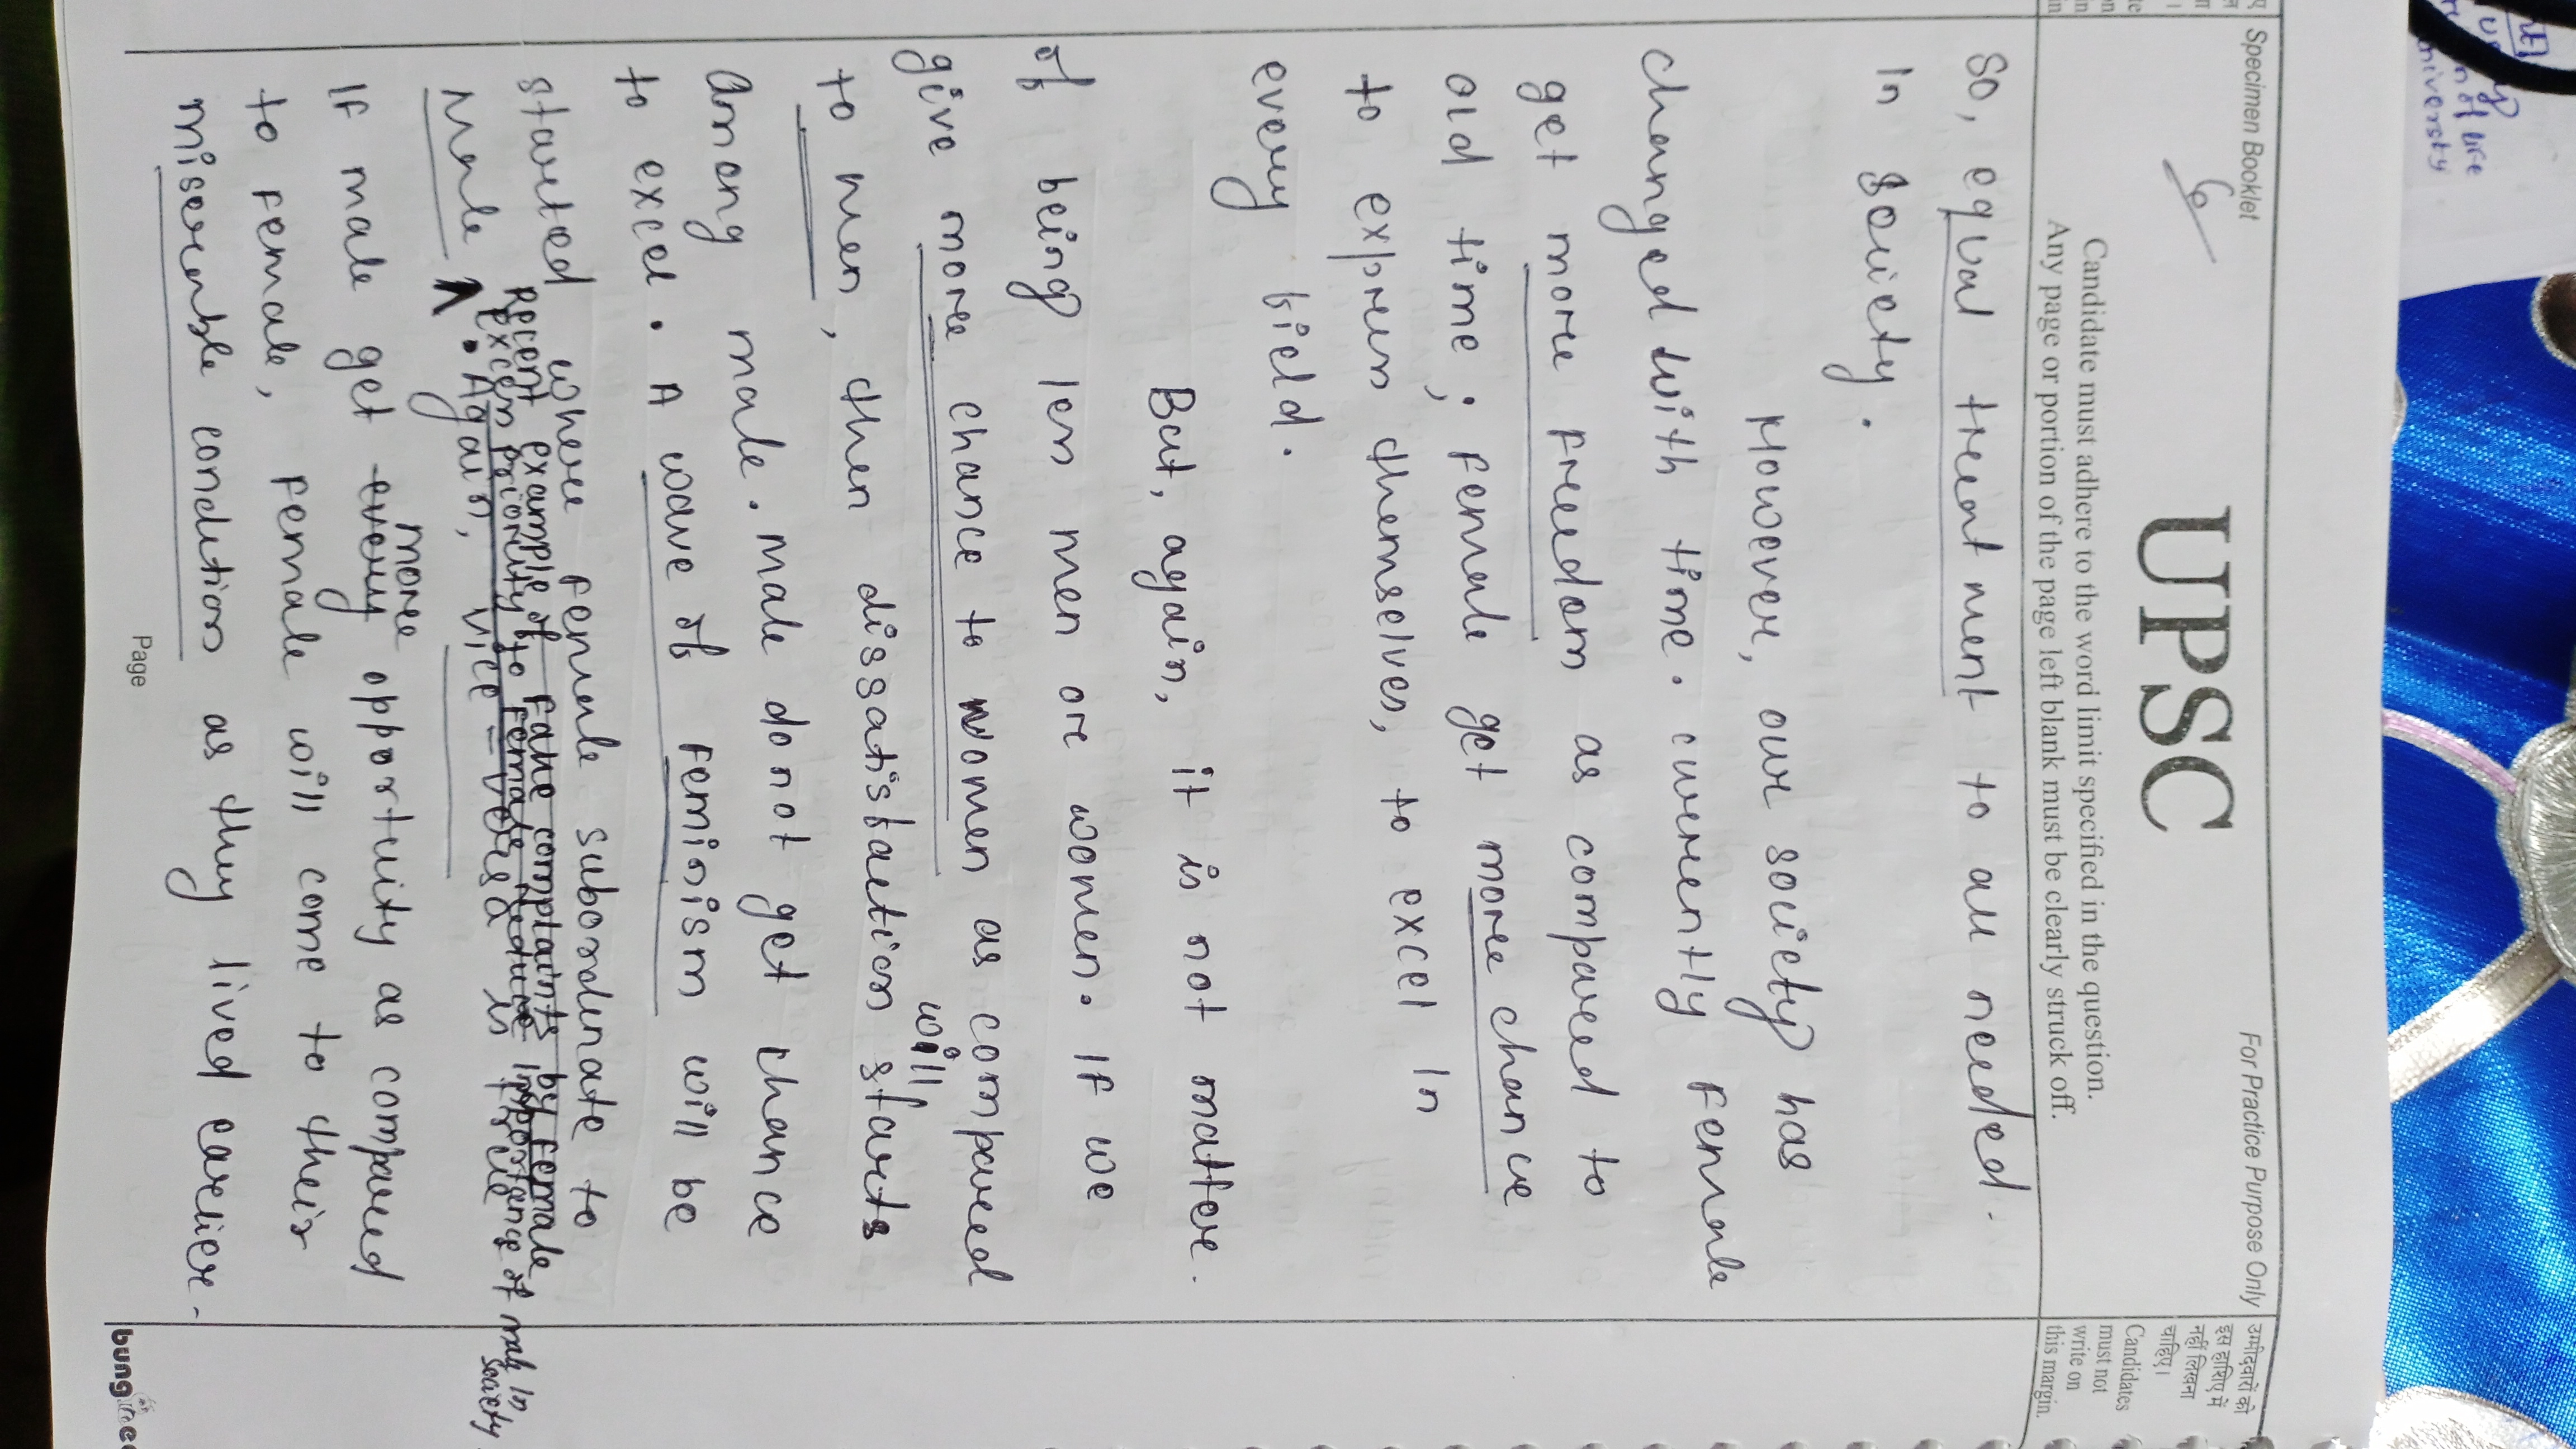 Specimen Booklet
For Practice Purpose Only
UPSC
6
Candidate must adhere to the word limit specified in the question.
Any page or portion of the page left blank must be clearly struck off.
उम्मीदवारों को
इस हाशिए में
नहीं लिखना
चाहिए।
Candidates
must not
write on
this margin.
So, equal treatment to all needed.
in society.
However, our society has
changed with time. currently female
get more freedom as compared to
old time; female get more chance
to express themselves, to excel in
every field.
But, again, it is not matter.
of being less men or women. If we
give more chance to women as compared
to men, then dissatisfaction will starts
among male. male do not get chance
to excel. A wave of feminism will be
started where female subordinate to
male. Again, vice-versa is true
Recent example of fake complaints by female
excess priority to female reduce importance of male in society
If male get every more opportuity as compared
to female, female will come to their
miserable condition as they lived earlier.
Page
of life
university